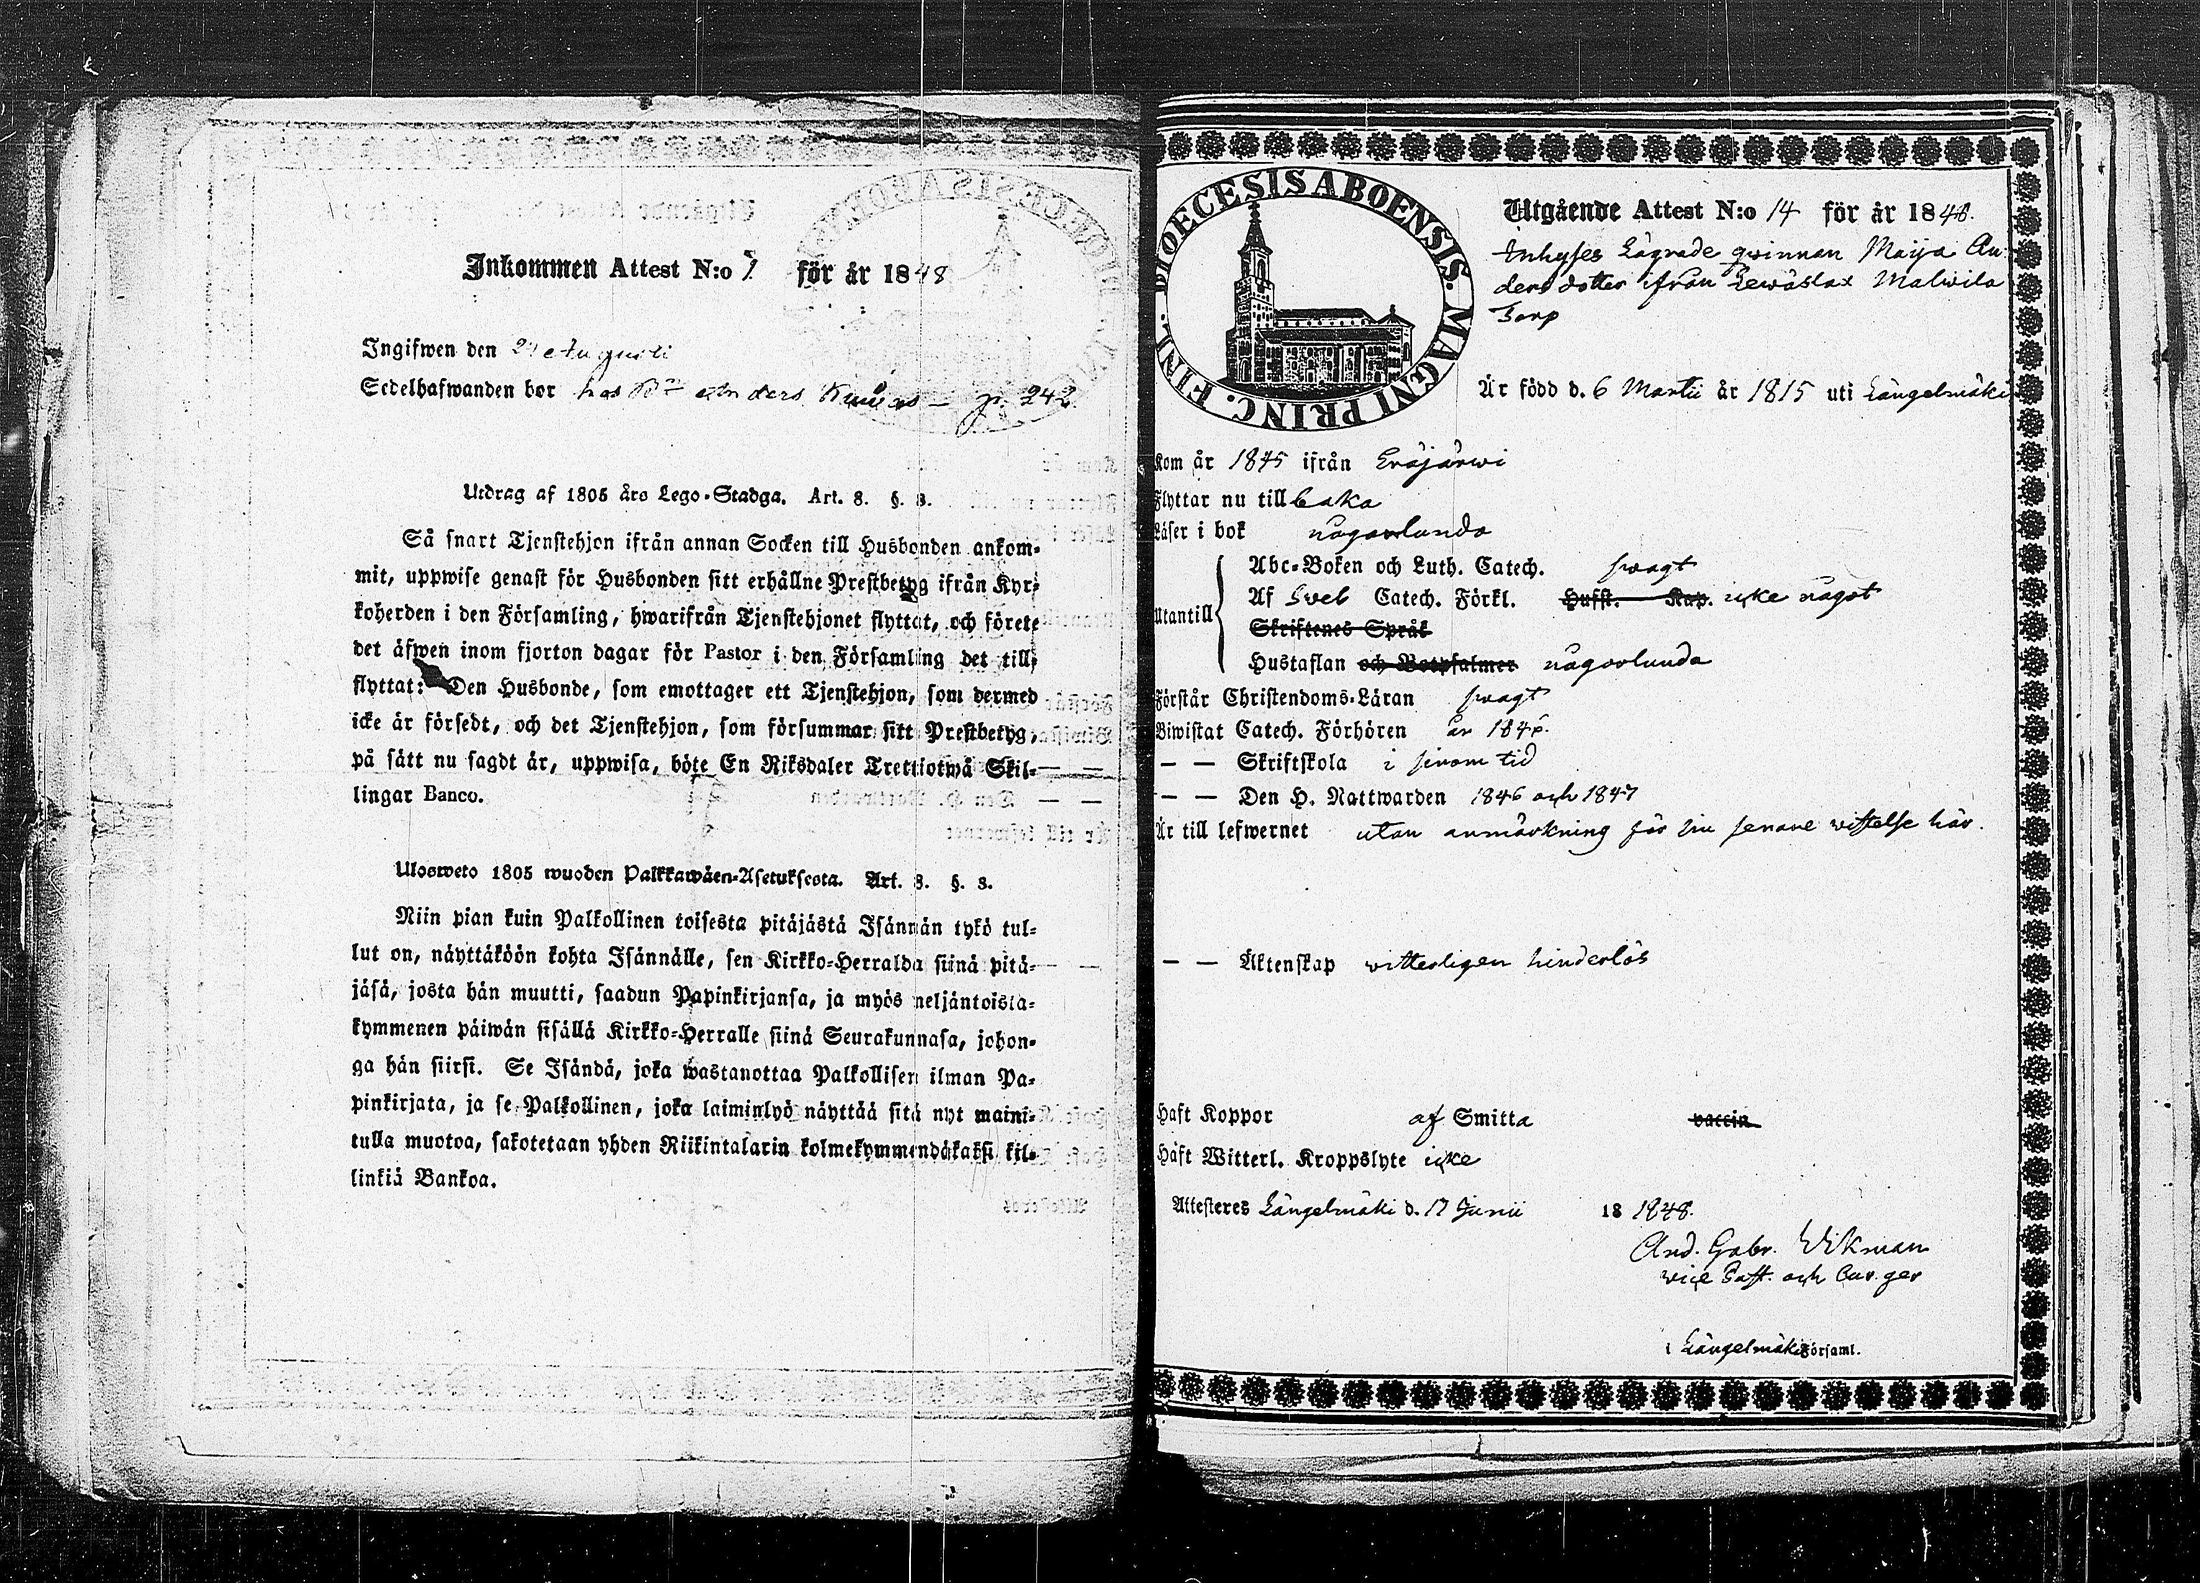 Inkommen Attest N:o för år 1848
Ingifwen den Augusti
Sedelhafwanden bor hos Anders p. 242
Utdrag af 1805 års Lego-Stadga. Art. 8. §. 8.
Så snart Tjenstehjon ifrån annan Socken till Husbonden ankom-
mit, uppwise genast för Husbonden sitt erhållne Prestbetyg ifrån Kyr-
koherden i den Församling, hwarifrån Tjenstehjonet flyttat, och förete
det äfwen inom fjorton dagar för Pastor i den Församling det till-
flyttat: Den Husbonde, som emottager ett Tjenstehjon, som dermed
icke är försedt, och det Tjenstehjon, som försummar sitt Prestbetyg,
på sätt nu sagdt är, uppwisa, böte En Riksdaler Trettiotwå Skil-
lingar Banco.
Ulosweto 1805 wuoden Palkkawäen-Asetuksesta. Art. 8. §. 8.
Niin pian kuin Palkollinen toisesta pitäjästä Isännän tykö tul-
lut on, näyttäköön kohta Isännälle, sen Kirkko-Herralda siinä pitä-
jäsä, josta hän muutti, saadun Papinkirjansa, ja myös neljäntoista-
kymmenen päiwän sisällä Kirkko-Herralle siinä Seurakunnasa, johon-
ga hän siirsi. Se Isändä, joka wastanottaa Palkollisen ilman Pa-
pinkirjata, ja se Palkollinen, joka laiminlyö näyttää sitä nyt maini-
tulla muotoa, sakotetaan yhden Riikintalarin kolmekymmendäkaksi kil-
linkiä Bankoa.
DIOECESIS ABOENSIS. MAGNI PRINC. FINL.
Utgående Attest N:o 14 för år 1848.
Inhyses Lägrade qwinnan Maija An-
dersdotter ifrån Lewäslax Malwila
Torp
Är född d. 6 Martii år 1815 uti Längelmäki
Kom år 1845 ifrån Eräjärwi
Flyttar nu tillbaka
Läser i bok någorlunda
Utantill
Abc-Boken och Luth. Catech. swagt
Af Sveb Catech. Förkl. Hufst. Kap. icke något
Skriftenes Språk
Hustaflan och Botpsalmer någorlunda
Förstår Christendoms-Läran swagt
Biwistat Catech. Förhören år 1846.
— — Skriftskola i sinom tid
— — Den H. Nattwarden 1846 och 1847
Är till lefwernet utan anmärkning för sin senare wistelse här.
— — Äktenskap witterligen hinderlös
Haft Koppor af Smitta vaccin
Haft Witterl. Kroppslyte icke
Attesteres Längelmäki d. 17 Junii 18 1848.
And. Gabr. Wikman
vice Past. och
i Längelmäki Församl.